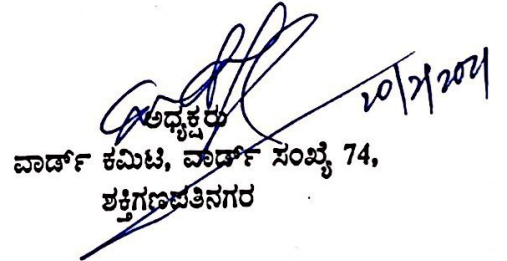 20/2/2021
ಅಧ್ಯಕ್ಷರು
ವಾರ್ಡ್ ಕಮಿಟಿ, ವಾರ್ಡ್ ಸಂಖ್ಯೆ 74,
ಶಕ್ತಿಗಣಪತಿನಗರ